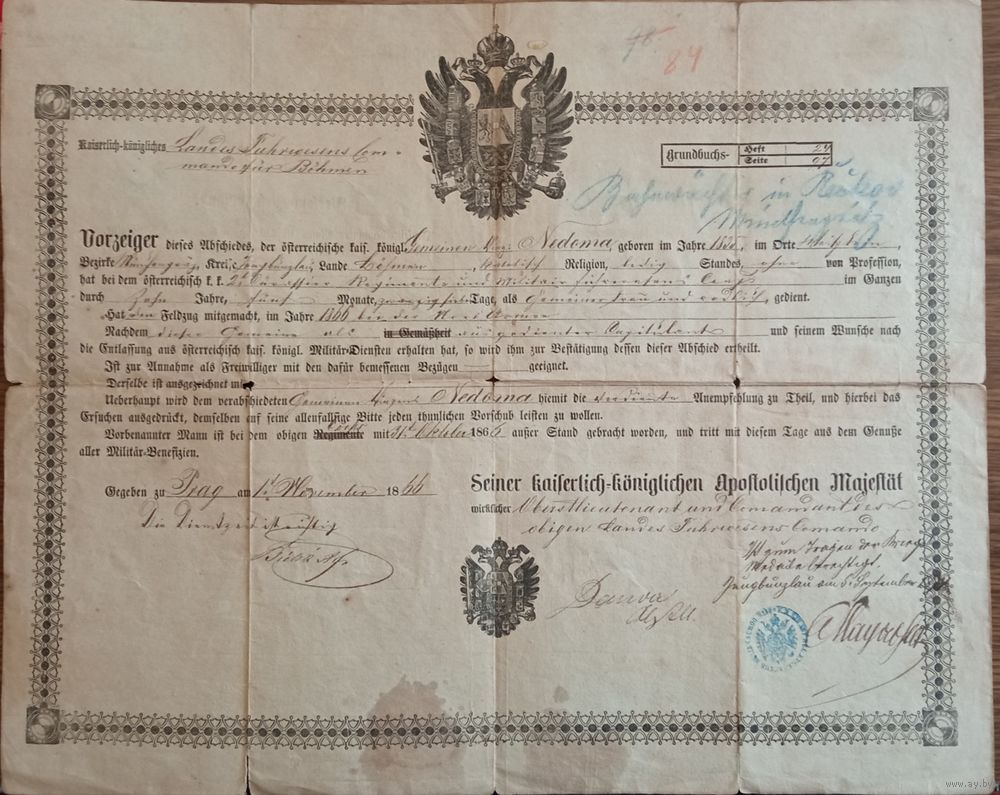 84
Kaiserlich-königliches Landes Fuhrwesens Com-
mando für Böhmen
Grundbuchs- Heft 24
Seite 07
Bahnwächter in
Vorzeiger dieses Abschiedes, der österreichische kais. königl. Gemeinen Nedoma, geboren im Jahre 18, im Orte
Bezirke Kreis Jungbunzlau, Lande Böhmen, katholisch Religion, ledig Standes, ohne von Profession,
hat bei dem österreichisch k. k. Cürassier Regimente und Militair fuhrwesens Corps im Ganzen
durch Zehn Jahre, fünf Monate, Tage, als Gemeiner treu und redlich gedient.
Hat den Feldzug mitgemacht, im Jahre 1866 bei der Nord Armee
Nachdem dieser Gemeine als in Gemäßheit ausgedienter Capitulant und seinem Wunsche nach
die Entlassung aus österreichisch kais. königl. Militär-Diensten erhalten hat, so wird ihm zur Bestätigung dessen dieser Abschied ertheilt.
Ist zur Annahme als Freiwilliger mit den dafür bemessenen Bezügen geeignet.
Derselbe ist ausgezeichnet mit
Ueberhaupt wird dem verabschiedeten Gemeinen Nedoma hiemit die verdiente Anempfehlung zu Theil, und hierbei das
Ersuchen ausgedrückt, demselben auf seine allenfallsige Bitte jeden thunlichen Vorschub leisten zu wollen.
Vorbenannter Mann ist bei dem obigen Regimente mit 31t Oktober 1866 außer Stand gebracht worden, und tritt mit diesem Tage aus dem Genuße
aller Militär-Benefizien.
Gegeben zu Prag am 1t November 1866
Seiner kaiserlich-königlichen Apostolischen Majestät
wirklicher Oberstlieutenant und Comandant des
obigen Landes Fuhrwesens Comando
Die Dienstzeit ist richtig
Ist zum Tragen der Kriegs
Medaile berechtigt.
Jungbunzlau am 5. September
www.ay.by